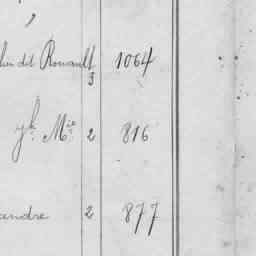 del Renault 1 1064
3
Jh. Mie. 2 816
andre 2 877